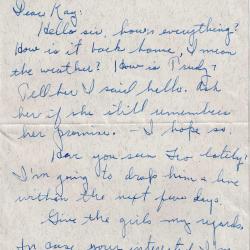 Dear Kay:
Hello sis, how's everything?
How is it back home, I mean
the weather? How is Trudy?
Tell her I said hello. Ask
her if she still remembers
her promise. – I hope so.
Have you seen Leo lately?
I'm going to drop him a line
within the next few days.
Give the girls my regards.
In case your interested I